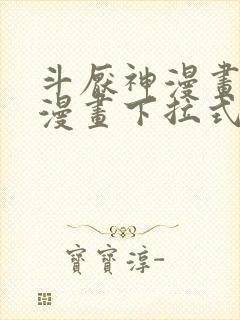 斗厰神漫畫
漫畫下拉式
寶寶淳-